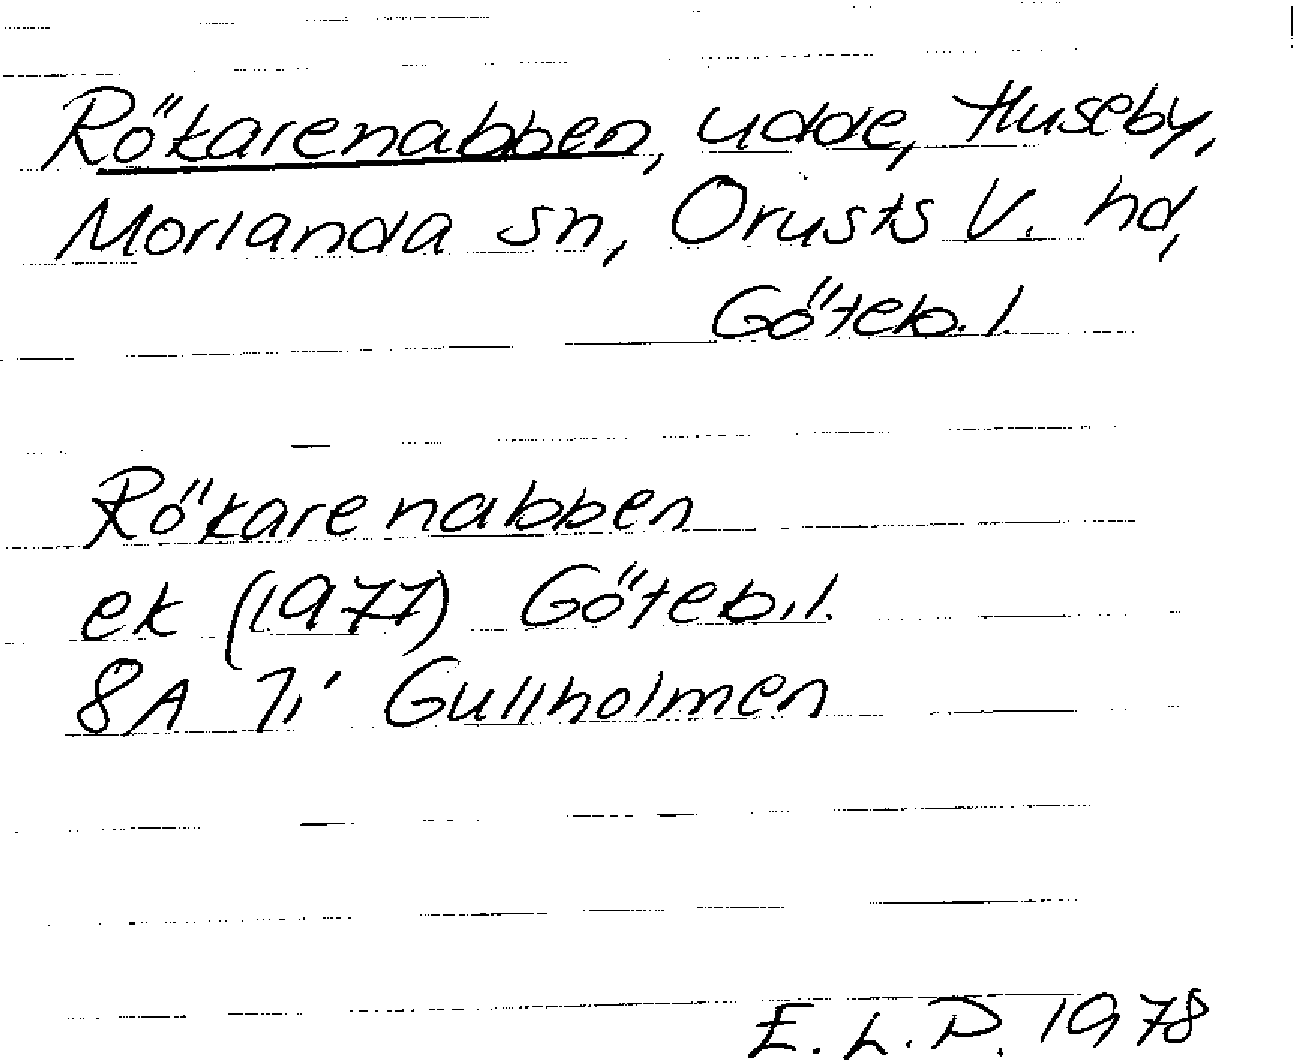 Rökarenabben, udde, Huseby,
Morlanda sn, Orusts V. hd,
Göteb. l
Rökarenabben
ek (1977) Göteb.l.
8A 7i Gullholmen
E. L. P. 1978